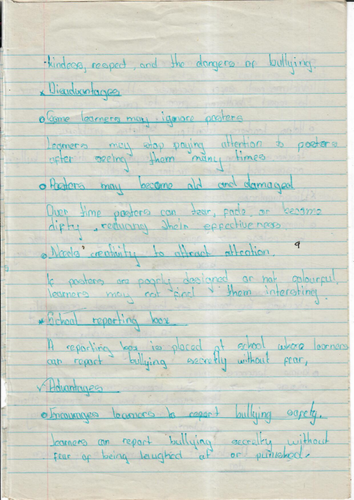 kindess, respect, and the dangers of bullying.
x Disadvantages
o Some learners may ignore posters
Learners may stop paying attention to posters
after seeing them many times
o Posters may become old and damaged
Over time posters can tear, fade, or become
dirty, reducing their effectiveness
o Needs creativity to attract attention. 9
If posters are poorly designed or not colourful,
learners may not find them interesting.
* School reporting box
A reporting box is placed at school where learners
can report bullying secretly without fear,
✓ Advantages
o Encourages learners to report bullying safely.
learners can report bullying secretly without
fear of being laughed at or punished.